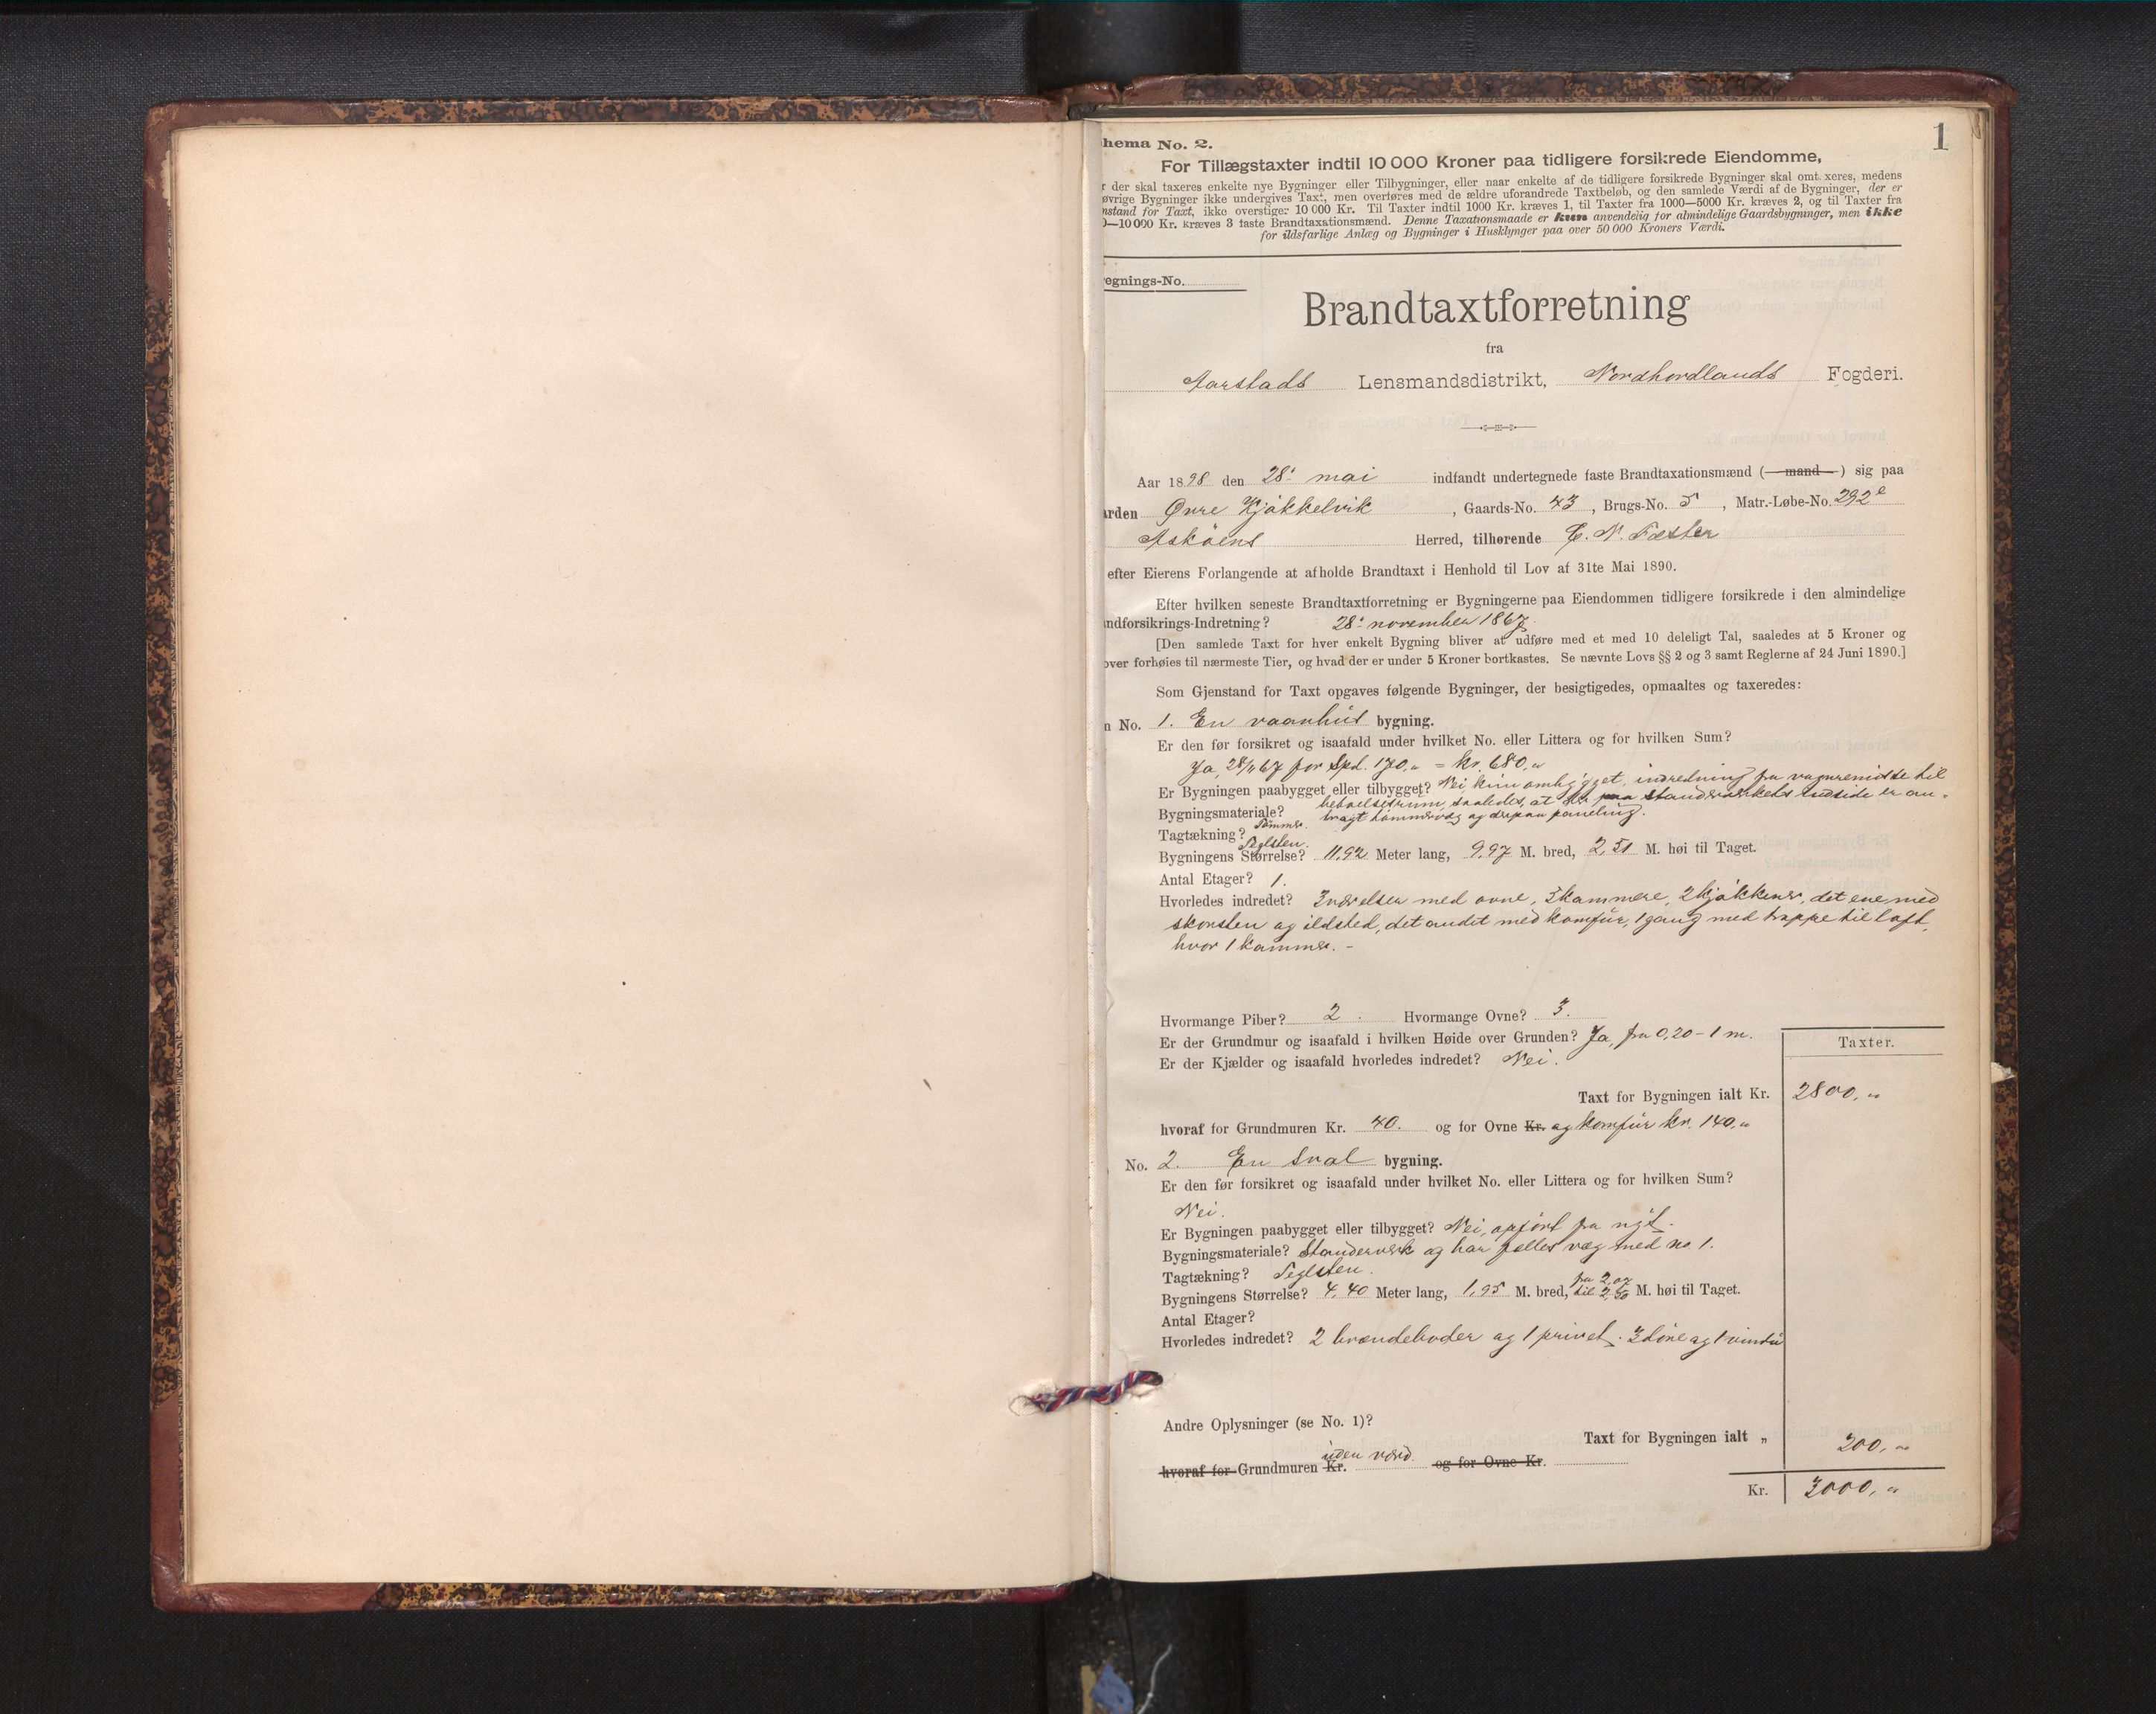 1
hema No. 2.
For Tillægstaxter indtil 10 000 Kroner paa tidligere forsikrede Eiendomme,
r der skal taxeres enkelte nye Bygninger eller Tilbygninger, eller naar enkelte af de tidligere forsikrede Bygninger skal omt.xeres, medens
øvrige Bygninger ikke undergives Taxt, men overføres med de ældre uforandrede Taxtbeløb, og den samlede Værdi af de Bygninger, der er
nstand for Taxt, ikke overstiger 10 000 Kr. Til Taxter indtil 1000 Kr. kræves 1, til Taxter fra 1000—5000 Kr. kræves 2, og til Taxter fra
0—10 000 Kr. kræves 3 faste Brandtaxationsmænd. Denne Taxationsmaade er kun anvendelig for almindelige Gaardsbygninger, men ikke
for ildsfarlige Anlæg og Bygninger i Husklynger paa over 50 000 Kroners Værdi.
egnings-No.
Brandtaxtforretning
fra
Aarstads Lensmandsdistrikt, Nordhordlands Fogderi.
Aar 1898 den 28. mai indfandt undertegnede faste Brandtaxationsmænd (mand) sig paa
arden Øvre Kjøkkelvik, Gaards-No. 43, Brugs-No. 5, Matr.-Løbe-No. 292 e
Askøens Herred, tilhørende C. N. Fæster
efter Eierens Forlangende at afholde Brandtaxt i Henhold til Lov af 31te Mai 1890.
Efter hvilken seneste Brandtaxtforretning er Bygningerne paa Eiendommen tidligere forsikrede i den almindelige
ndforsikrings-Indretning? 28. november 1867.
[Den samlede Taxt for hver enkelt Bygning bliver at udføre med et med 10 deleligt Tal, saaledes at 5 Kroner og
over forhøies til nærmeste Tier, og hvad der er under 5 Kroner bortkastes. Se nævnte Lovs §§ 2 og 3 samt Reglerne af 24 Juni 1890.]
Som Gjenstand for Taxt opgaves følgende Bygninger, der besigtigedes, opmaaltes og taxeredes:
n No. 1. En vaanhus bygning.
Er den før forsikret og isaafald under hvilket No. eller Littera og for hvilken Sum?
Ja, 28/11 67 for Spd. 170,„ = kr. 680,„
Er Bygningen paabygget eller tilbygget? Nei, kun ombygget, indredning fra til
beboelsesrum, saaledes, at der paa standerværkets indside er an-
Bygningsmateriale? bragt tømmervæg og derpaa paneling.
Tømmer.
Tagtækning? Teglsten.
Bygningens Størrelse? 11,92 Meter lang, 9,97 M. bred, 2,51 M. høi til Taget.
Antal Etager? 1.
Hvorledes indredet? 3 værelser med ovne, 3 kammere, 2 kjøkkener, det ene med
skorsten og ildsted, det andet med komfür, 1 gang med trappe til loft,
hvor 1 kammer. -
Hvormange Piber? 2. Hvormange Ovne? 3.
Er der Grundmur og isaafald i hvilken Høide over Grunden? Ja, fra 0,20 - 1 m.
Er der Kjælder og isaafald hvorledes indredet? Nei.
Taxter.
Taxt for Bygningen ialt Kr. 2800,„
hvoraf for Grundmuren Kr. 40. og for Ovne Kr. og komfür kr. 140,„
No. 2. En sval bygning.
Er den før forsikret og isaafald under hvilket No. eller Littera og for hvilken Sum?
Nei.
Er Bygningen paabygget eller tilbygget? Nei, opført fra nyt.
Bygningsmateriale? Standerverk og har fælles væg med no 1.
Tagtækning? Teglsten.
Bygningens Størrelse? 4,40 Meter lang, 1,95 M. bred, fra 2,07 til 2,50 M. høi til Taget.
Antal Etager?
Hvorledes indredet? 2 brændeboder og 1 privet. 3 döre og 1 vindü
Andre Oplysninger (se No. 1)?
Taxt for Bygningen ialt „ 200,„
hvoraf for Grundmuren Kr. üden værd. og for Ovne Kr.
Kr. 3000,„